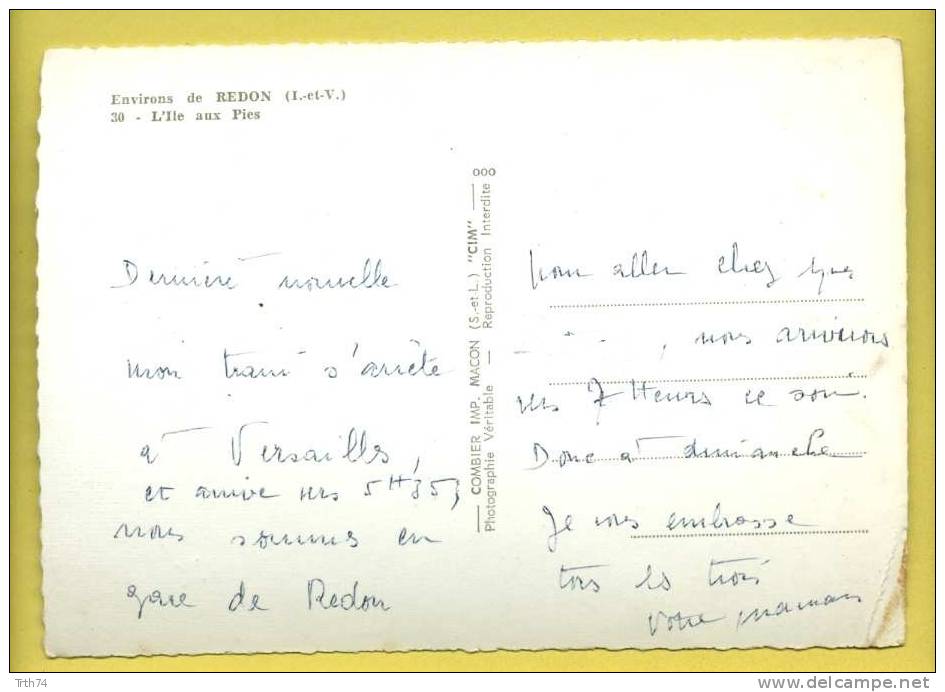 Environs de REDON (I.-et-V.)
30 - L'Ile aux Pies
Dernière nouvelle
mon train s'arrête
à Versailles,
et arrive vers 5H35,
nous sommes en
gare de Redon
COMBIER IMP. MACON (S.-et-L.) "CIM"
Photographie Véritable — Reproduction Interdite
ooo
pour aller chez
, nous arriverons
vers 7 Heures ce soir.
Donc à dimanche
Je vous embrasse
tous les trois
Votre maman
Trth74
delcampe.net